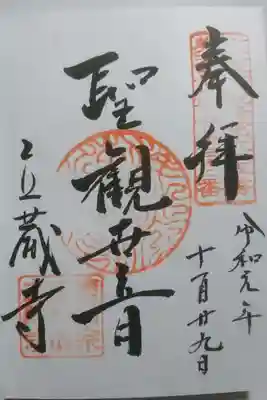 奉拝
令和元年
十一月廿九日
聖觀世音
蔵寺